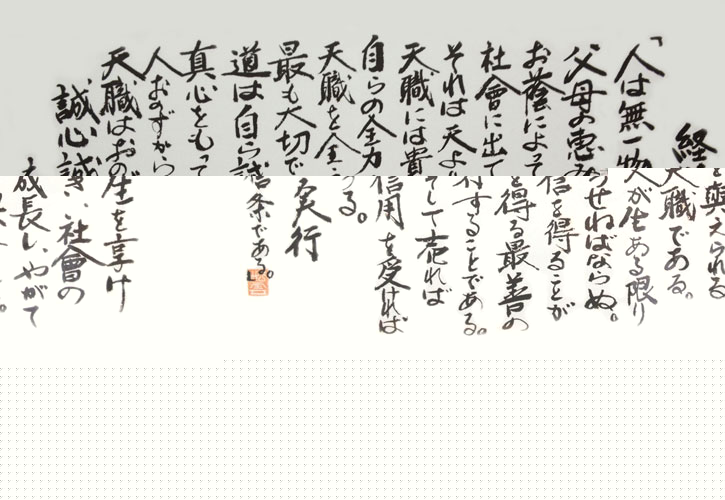 経
「人は無一物
父母の恵み
お蔭によって
社會に出て
それは天より
天職には貴
自らの全力
天職を全
最も大切で
道は自ら
真心をもって
人おのずから
天職はおの
誠心誠
與えられる
天職である。
が生ある限り
せねばならぬ。
信を得ることが
を得る最善の
することである。
して売れば
信用を受ければ
る。
実行
条である。
生を享け
い、社會の
成長し、やがて